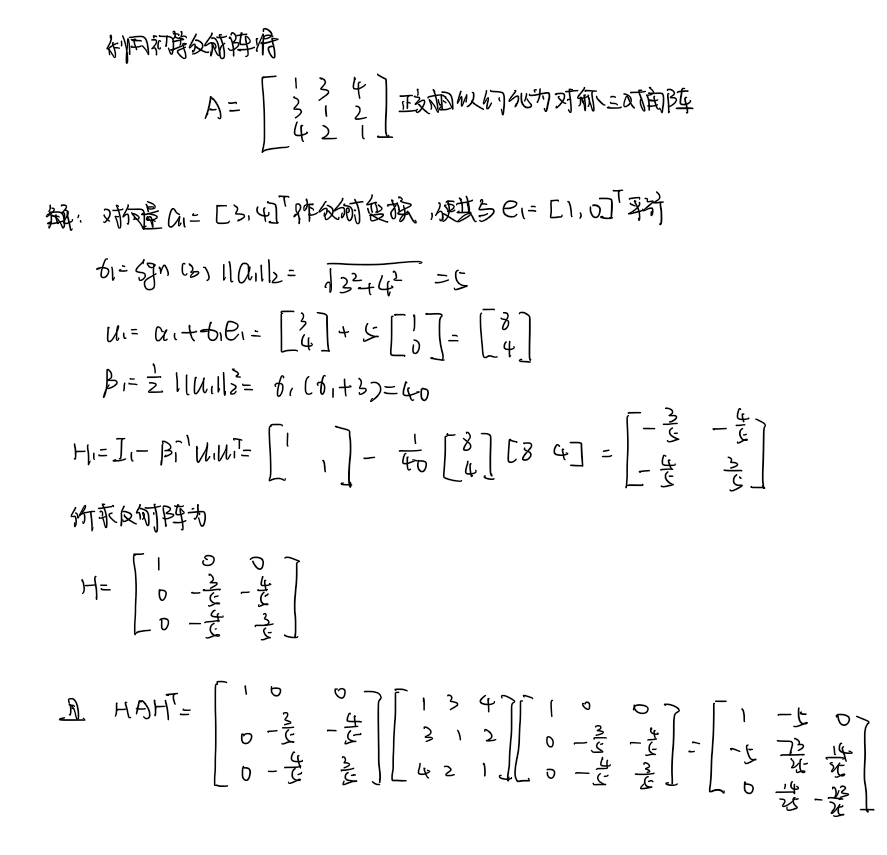 利用初等反射阵将
A = [1 3 4; 3 1 2; 4 2 1] 正交相似约化为对称三对角阵
解: 对向量 α₁ = [3, 4]ᵀ 作反射变换, 使其与 e₁ = [1, 0]ᵀ 平行
σ₁ = sgn (3) ||α₁||₂ = √(3²+4²) = 5
u₁ = α₁ + σ₁e₁ = [3; 4] + 5 [1; 0] = [8; 4]
β₁ = 1/2 ||u₁||₂² = σ₁ (σ₁+3) = 40
H₁ = I₁ - β₁⁻¹ u₁u₁ᵀ = [1 ; 1] - 1/40 [8; 4] [8 4] = [-3/5 -4/5; -4/5 3/5]
所求反射阵为
H = [1 0 0; 0 -3/5 -4/5; 0 -4/5 3/5]
且 HAHᵀ = [1 0 0; 0 -3/5 -4/5; 0 -4/5 3/5] [1 3 4; 3 1 2; 4 2 1] [1 0 0; 0 -3/5 -4/5; 0 -4/5 3/5] = [1 -5 0; -5 73/25 14/25; 0 14/25 -23/25]